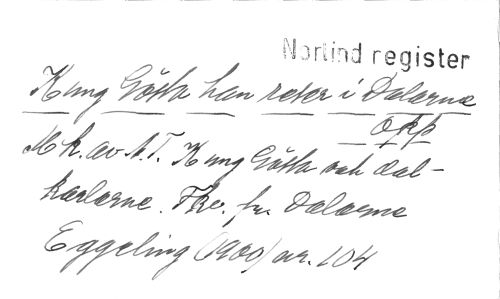 Norlind register
Kung Gösta han reser i Dalarne
opp
Mk. av A.T. Kung Gösta och dal-
karlarne. Tkr. fr. Dalarne
Eggeling (1900) nr. 104